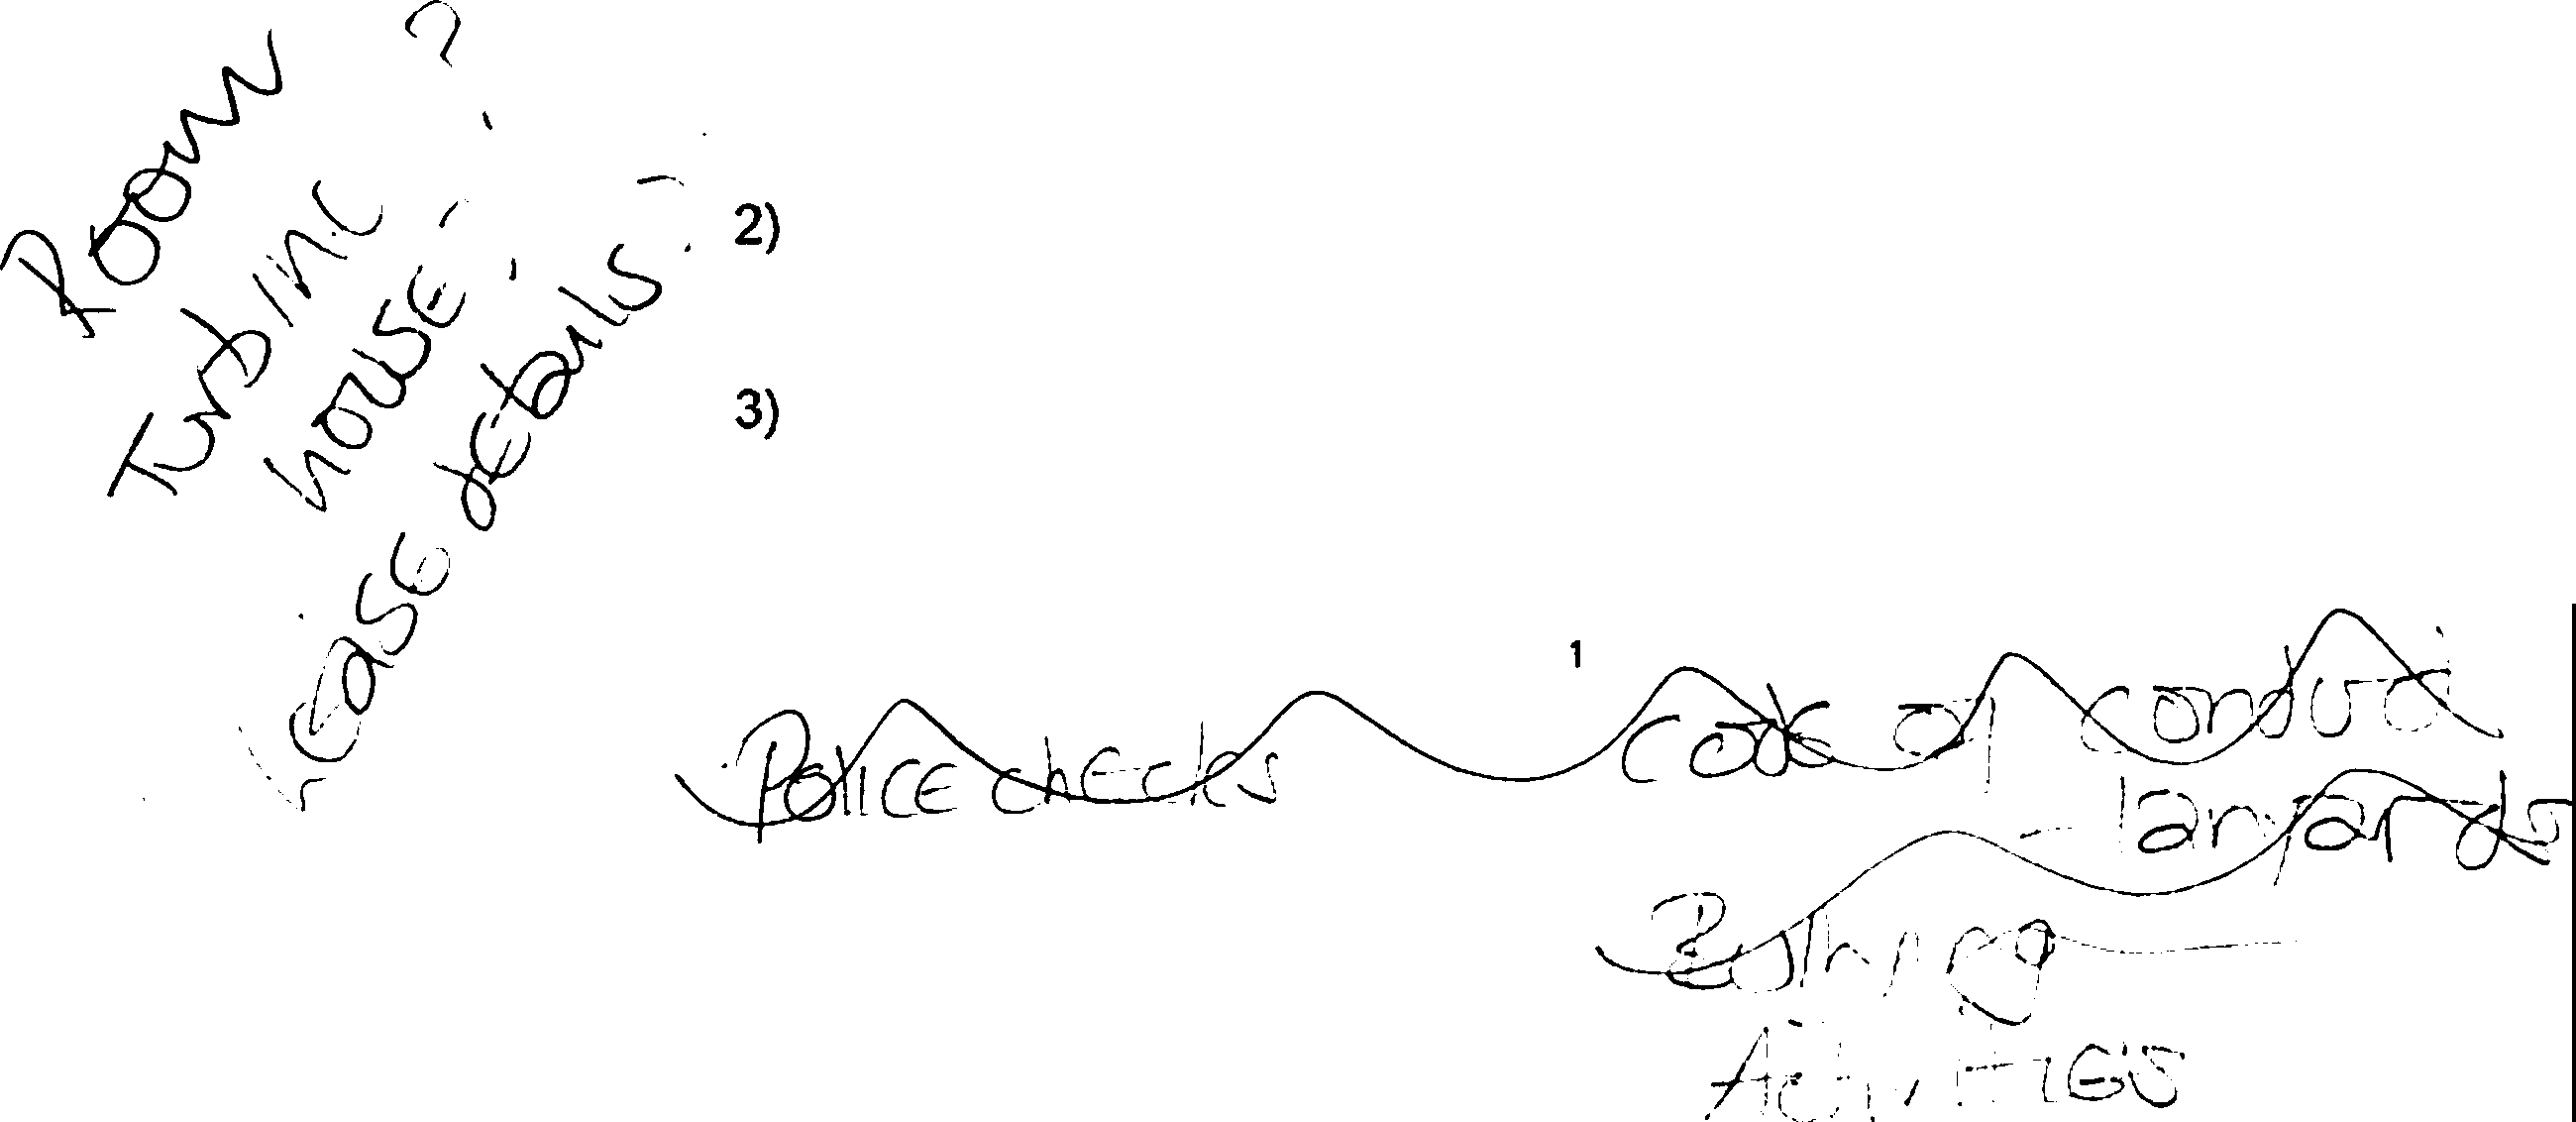 Room ?
Turbine
house
lease details
2)
3)
1
Police checks
code of conduct
- lanyards
Bushing
Activities